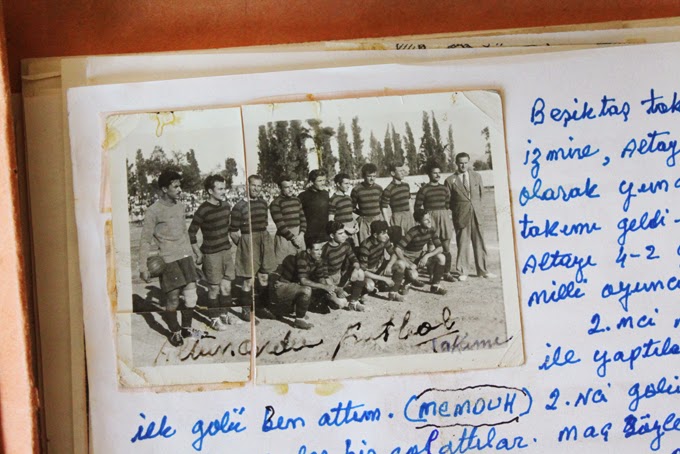 Beşiktaş tak
izmire, Altay
olarak
takımı geldi-
Altayı 4-2
milli oyuncu
2.nci
ile yaptıla
Altınordu futbol
Takımı
ilk golü ben attım. (MEMDUH) 2.Nci golü
bir gol attılar. maç böyle